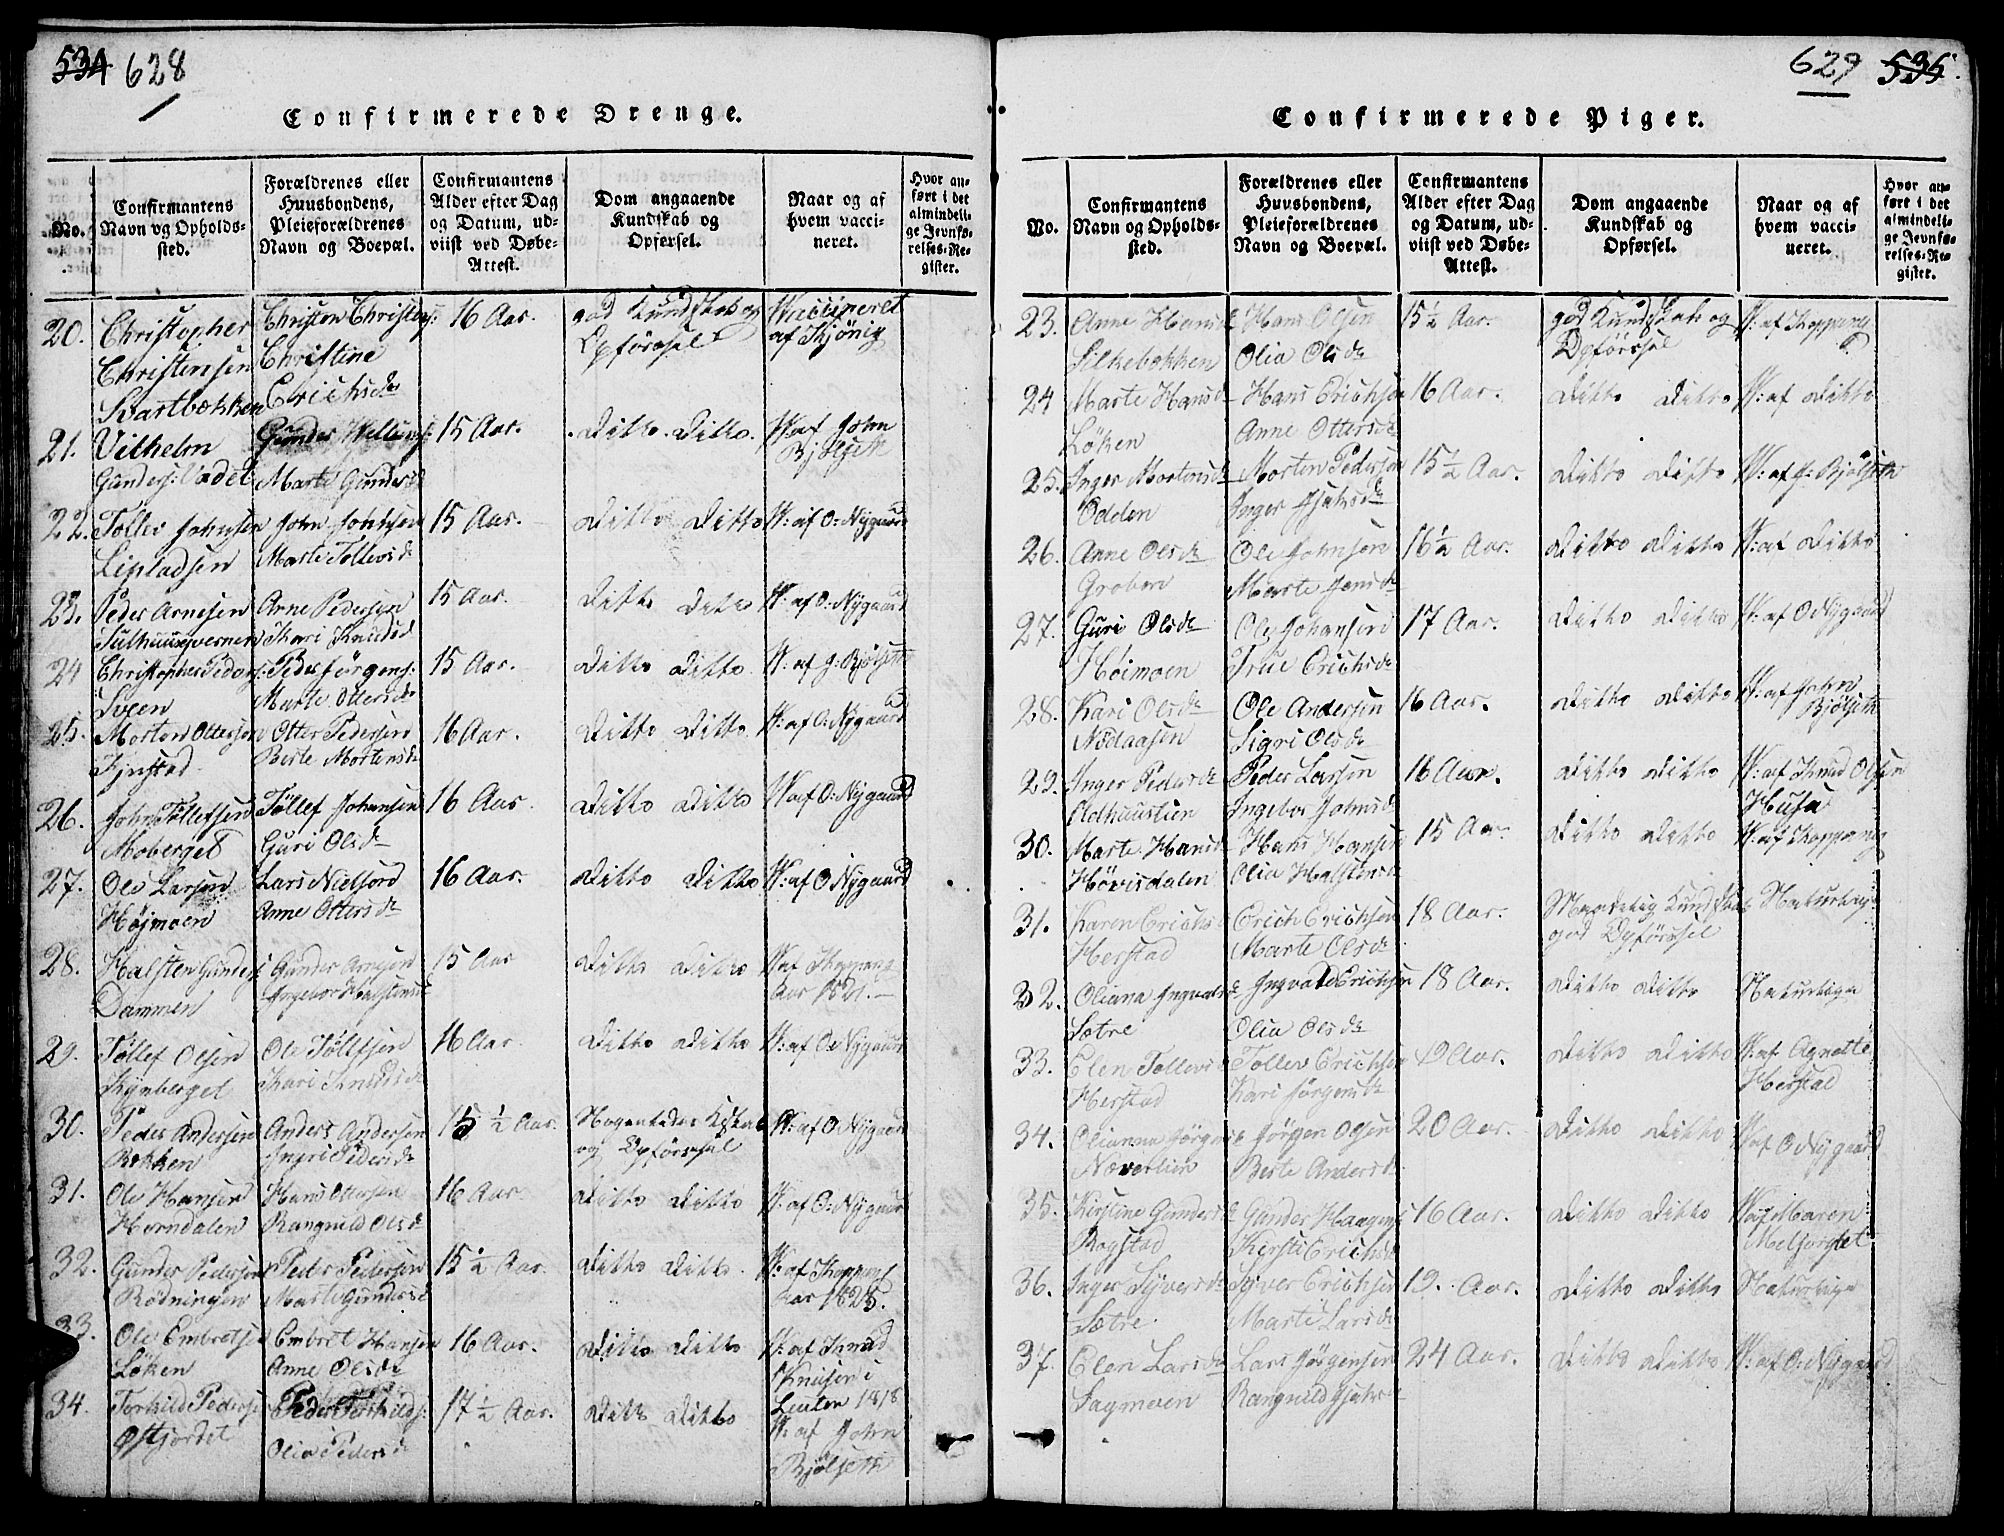 534 628
Confirmerede Drenge.
No.
Confirmantens Navn og Opholds-sted.
Forældrenes eller Huusbondens, Pleieforældrenes Navn og Boepæl.
Confirmantens Alder efter Dag og Datum, ud-viist ved Døbe-Attest.
Dom angaaende Kundskab og Opførsel.
Naar og af hvem vacci-neret.
Hvor an-ført i det almindeli-ge Jevnfø-relses-Re-gister.
20. Christopher Christen Christens: 16 Aar. god Kundskab og Vaccineret
Christensen Christine Opførssel af Skjönig
Svartbækken Erichsd
21. Vilhelm Gunder Willums: 15 Aar. Ditto. Ditto. V: af John
Gunders: Vadet Marte Gundersd Bjölseth
22. Tollev Johnsen John Johnsen 15 Aar. Ditto Ditto V: af O: Nygaard
Lipladsen Marte Tollevsd
23. Peder Arnesen Arne Pedersen 15 Aar. Ditto Ditto V: af O: Nygaard
Kari Knudsd
24 Christopher Peders: Peder Jörgens: 15 Aar. Ditto Ditto. V: af J: Bjölseth
Sveen Marte Ottersd
25. Morten Ottersen Otter Pedersen 16 Aar. Ditto Ditto V: af O: Nygaard
Fjnstad Berte Mortensd
26. John Töllefsen Töllef Johansen 16 Aar. Ditto Ditto V: af O: Nygaard
Moberget Guri Olsd
27. Ole Larsen Lars Nielsen 16 Aar. Ditto Ditto V: af O: Nygaard
Höjmoen Anne Ottersd
28. Halsten Gunders: Gunder Arnesen 15 Aar Ditto Ditto V: af Koppang
Dammen Ingebor Halstensd Aar 1821.
29. Töllef Olsen Ole Töllefsen 16 Aar. Ditto Ditto V: af O: Nygaard
Rynberget Kari Knudsd
30. Peder Andersen Anders Andersen 15 1/2 Aar. Nogenledes Kskab V: af O: Nygaard
Bekken Ingri Pedersd og Opförssel
31. Ole Hansen Hans Ottersen 16 Aar. Ditto Ditto V: af O: Nygaard
Horndalen Rangnild Olsd
32. Gunder Pedersen Peder Pedersen 15 1/2 Aar. Ditto Ditto. V: af Koppang
Rödningen Marte Gundersd Aar 1825.
33. Ole Embretsen Embret Hansen 16 Aar. Ditto Ditto V: af Knud
Löken Anne Olsd Knudsen i
34. Torkild Peders: Peder Torkilds: 17 1/2 Aar. Ditto Ditto Leuten 1818
Østjordet Olia Pedersd V: af John
Bjölseth
629 535.
Confirmerede Piger.
No.
Confirmantens Navn og Opholds-sted.
Forældrenes eller Huusbondens, Pleieforældrenes Navn og Boepæl.
Confirmantens Alder efter Dag og Datum, ud-viist ved Døbe-Attest.
Dom angaaende Kundskab og Opførsel.
Naar og af hvem vacci-neret.
Hvor an-ført i det almindeli-ge Jevnfø-relses-Re-gister.
23. Anne Hansd Hans Olsen 15 1/2 Aar. god Kundskab og V: af Koppang
Silkebekken Olia Olsd Opførssel
24 Marte Hansd Hans Erichsen 16 Aar. Ditto Ditto V: af Ditto
Löken Anne Ottersd
25. Inger Mortensd Morten Pedersen 15 1/2 Aar. Ditto Ditto V: af J: Bjölseth
Odden Inger
26. Anne Olsd Ole Johnsen 16 1/2 Aar. Ditto Ditto V: af Ditto
Groben Marte Jensd
27. Guri Olsd Ole Johansen 17 Aar. Ditto Ditto V: af O Nygaard
Höimoen True Erichsd
28. Kari Olsd Ole Andersen 16 Aar. Ditto Ditto V: af John
Nödaasen Sigri Olsd Bjölseth
29. Inger Pedersd Peder Larsen 16 Aar. Ditto Ditto V: af Knud Olsen
Ingebor Johnsd Husu
30. Marte Hansd Hans Hansen 15 Aar. Ditto Ditto V: af Koppang
Hövisdalen Olia Halstensd
31. Karen Erichsd Erich Erichsen 18 Aar. Maadelig Kundskab Naturlige
Herstad Marte Olsd god Opførssel
32. Oliana Ingvalsd Ingvald Erichsen 18 Aar. Ditto Ditto Naturlige
Sætre Olia Olsd
33. Elen Tollevsd Tollev Erichsen 19 Aar. Ditto Ditto V: af Agnette
Herstad Kari Jörgensd Herstad
34. Olianna Jörgensd Jörgen Olsen 20 Aar. Ditto Ditto V af O Nygaard
Næverlien Berte Andersd
35. Kirstine Gundersd Gunder Haagens: 16 Aar. Ditto Ditto V af Maren
Rogstad Kersti Erichsd
36. Inger Syversd Syver Erichsen 19. Aar. Ditto Ditto Naturlige
Sætre. Marte Larsd
37. Elen Larsd Lars Jörgensen 24 Aar. Ditto Ditto V: af O: Nygaard
Sagmoen Rangnild